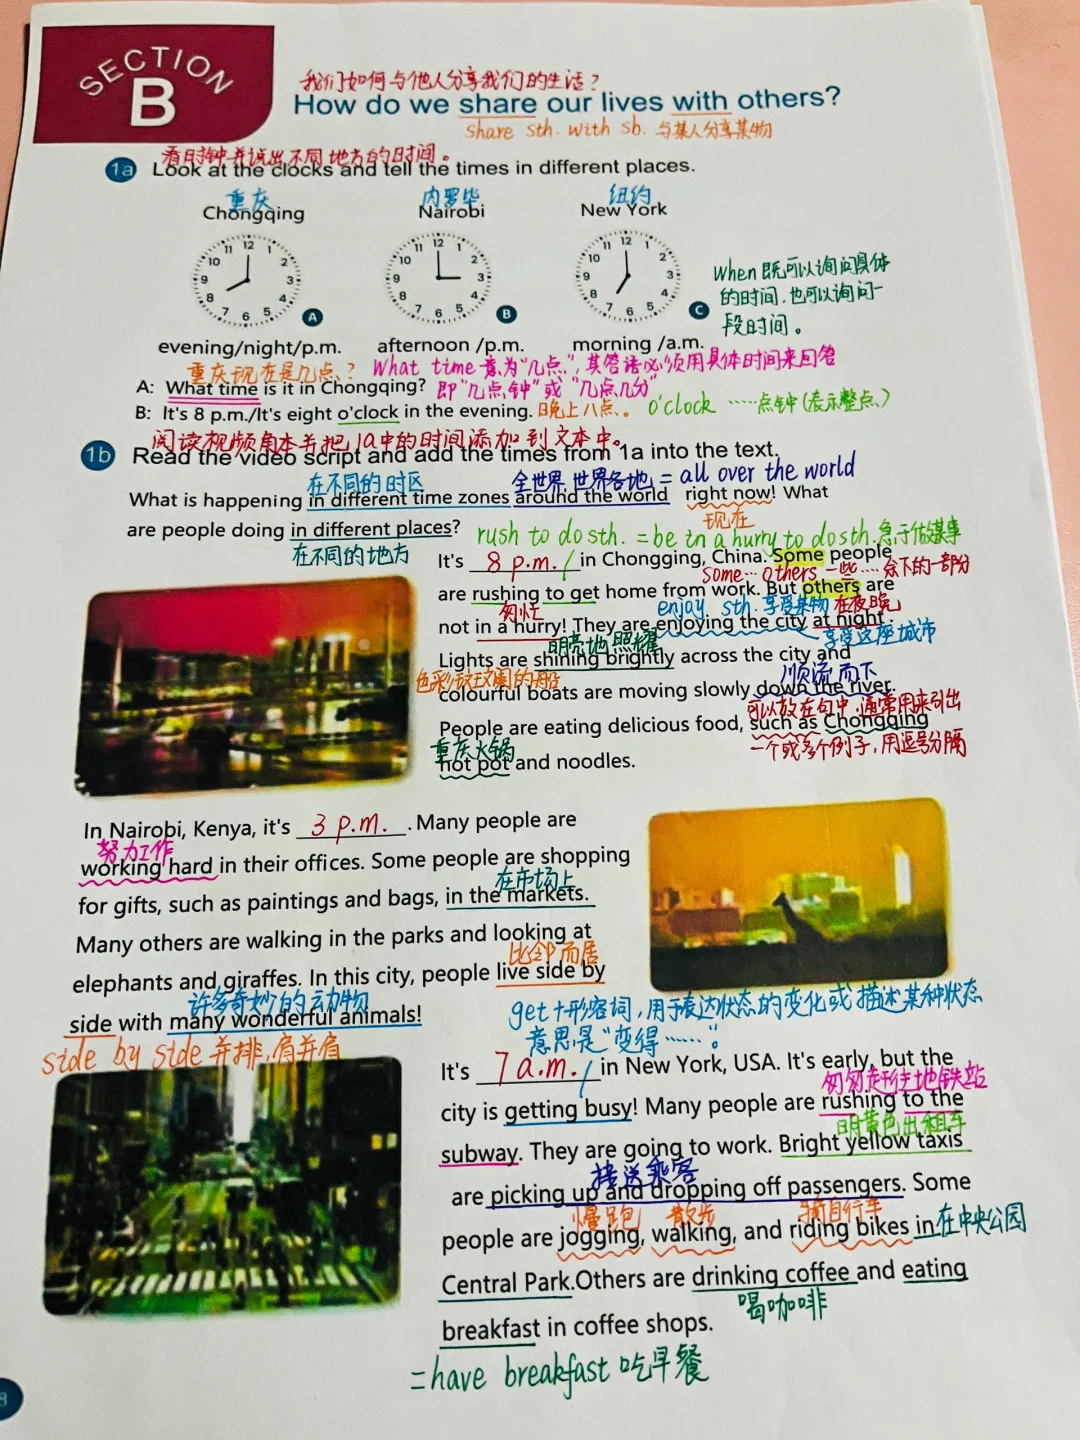 SECTION
B
我们如何与他人分享我们的生活?
How do we share our lives with others?
share sth. with sb. 与某人分享某物
看时钟并说出不同地方的时间。
1a Look at the clocks and tell the times in different places.
重庆 内罗毕 纽约
Chongqing Nairobi New York
12 1 2 3 4 5 6 7 8 9 10 11
12 1 2 3 4 5 6 7 8 9 10 11
12 1 2 3 4 5 6 7 8 9 10 11
A B C
When 既可以询问具体
的时间,也可以询问一
段时间。
evening/night/p.m. afternoon /p.m. morning /a.m.
重庆现在是几点? What time 意为"几点",其答语必须用具体时间来回答
A: What time is it in Chongqing? 即"几点钟"或"几点几分"
B: It's 8 p.m./It's eight o'clock in the evening. 晚上八点。 o'clock ……点钟(表示整点)
阅读视频脚本并把1a中的时间添加到文本中。
1b Read the video script and add the times from 1a into the text.
在不同的时区 全世界,世界各地 = all over the world
What is happening in different time zones around the world right now! What
现在
are people doing in different places? rush to do sth. = be in a hurry to do sth. 急于做某事
在不同的地方
It's 8 p.m. in Chongqing, China. Some people
some… others 一些…… 余下的一部分
are rushing to get home from work. But others are
匆忙 enjoy sth. 享受某物 在夜晚
not in a hurry! They are enjoying the city at night.
明亮地照耀 享受这座城市
Lights are shining brightly across the city and
色彩斑斓的船 顺流而下
colourful boats are moving slowly down the river.
可以放在句中,通常用来引出
People are eating delicious food, such as Chongqing
重庆火锅 一个或多个例子,用逗号分隔
hot pot and noodles.
In Nairobi, Kenya, it's 3 p.m. . Many people are
努力工作
working hard in their offices. Some people are shopping
在市场上
for gifts, such as paintings and bags, in the markets.
Many others are walking in the parks and looking at
比邻而居
elephants and giraffes. In this city, people live side by
许多奇妙的动物
side with many wonderful animals!
side by side 并排,肩并肩
get+形容词,用于表达状态的变化或描述某种状态
意思是"变得……"。
It's 7 a.m. in New York, USA. It's early, but the
匆匆赶往地铁站
city is getting busy! Many people are rushing to the
明黄色出租车
subway. They are going to work. Bright yellow taxis
接送乘客
are picking up and dropping off passengers. Some
慢跑 散步 骑自行车
people are jogging, walking, and riding bikes in 在中央公园
Central Park.Others are drinking coffee and eating
喝咖啡
breakfast in coffee shops.
=have breakfast 吃早餐
8